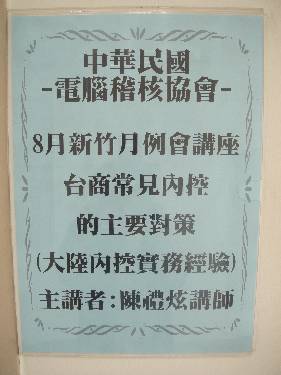 中華民國
-電腦稽核協會-
8月新竹月例會講座
台商常見內控
的主要對策
(大陸內控實務經驗)
主講者:陳禮炫講師